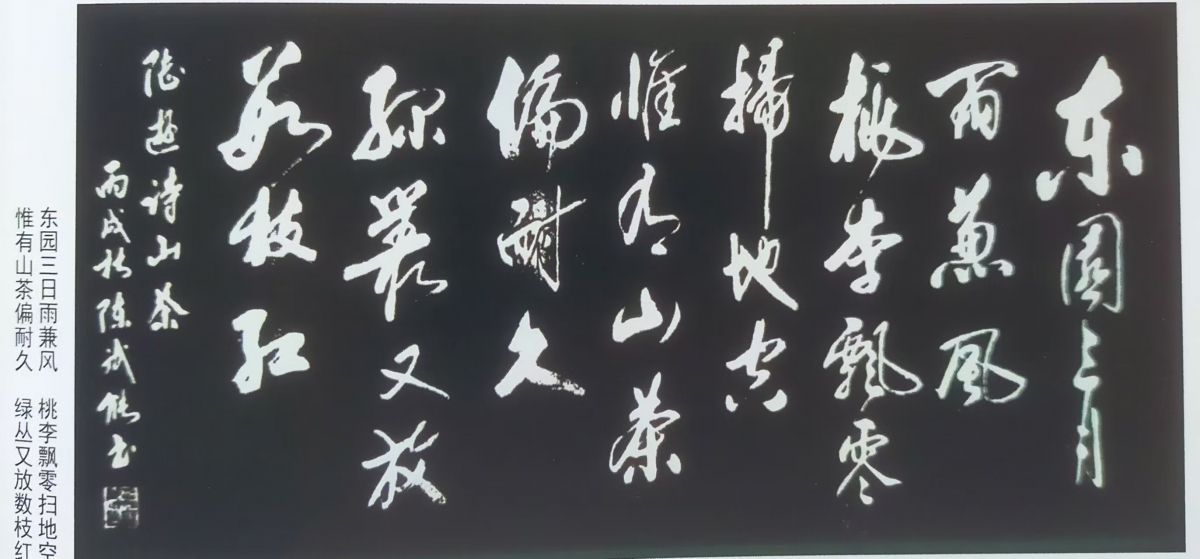 东園三月
雨兼風
桃李飄零
掃地空
惟有山茶
偏耐久
緑叢又放
数枝红
陸遊诗山茶
丙戌秋陈能书
东园三日雨兼风 桃李飘零扫地空
惟有山茶偏耐久 绿丛又放数枝红